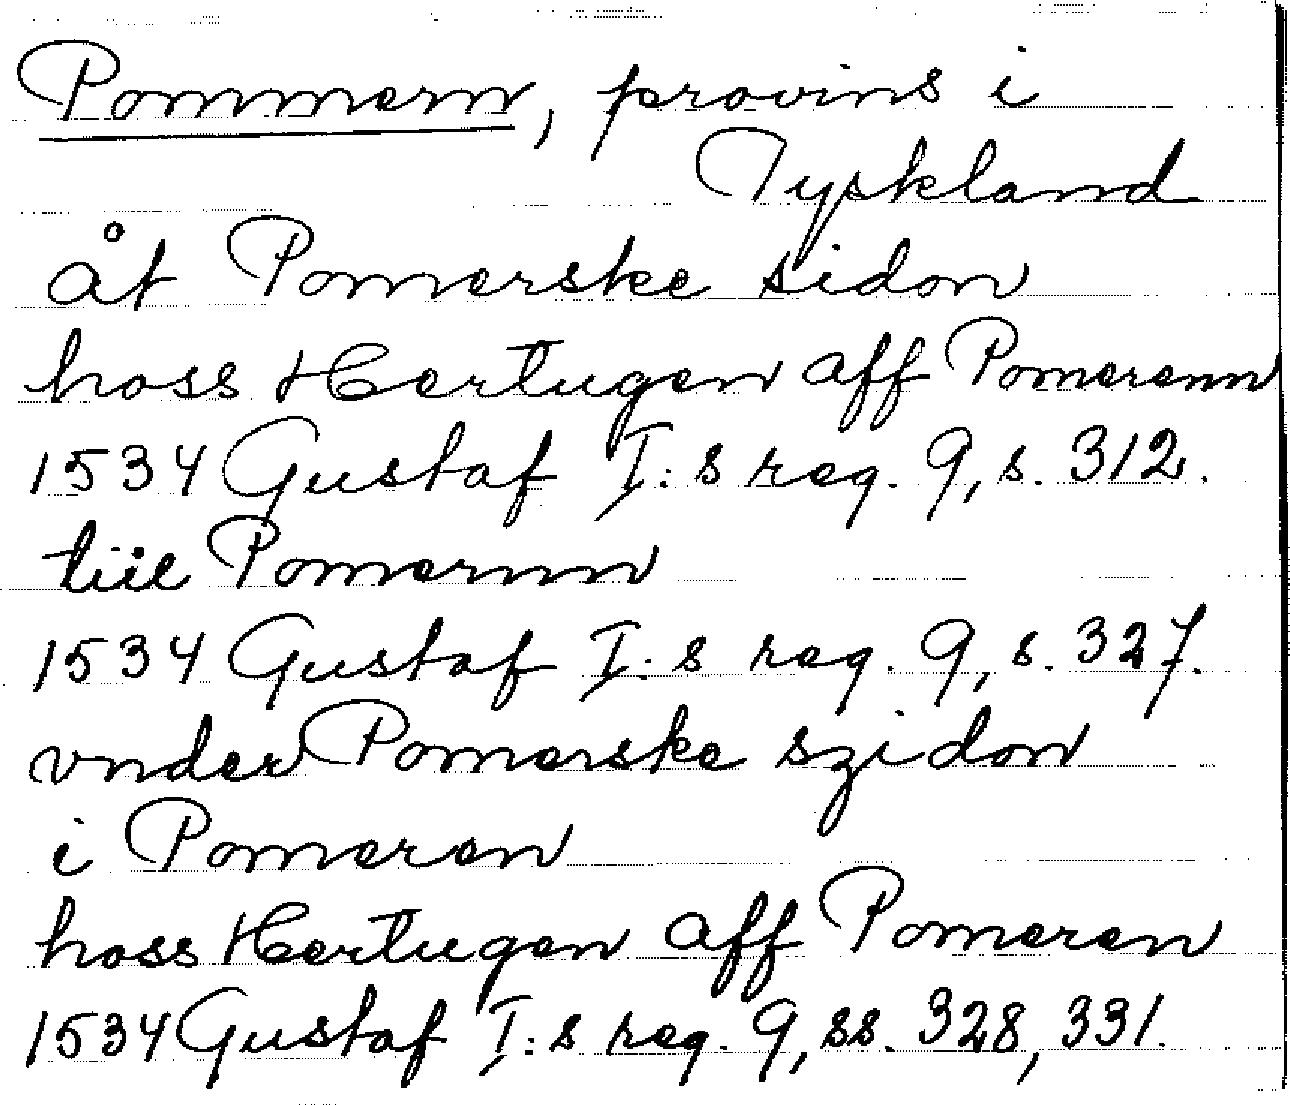 Pommern, provins i
Tyskland
åt Pomerske sidon
hoss Hertugen aff Pomerenn
1534 Gustaf I:s reg. 9, s. 312.
tiil Pomernn
1534 Gustaf I:s reg. 9, s. 327.
vnder Pomerske szidon
i Pomeren
hoss Hertugen aff Pomeren
1534 Gustaf I:s reg. 9, ss. 328, 331.